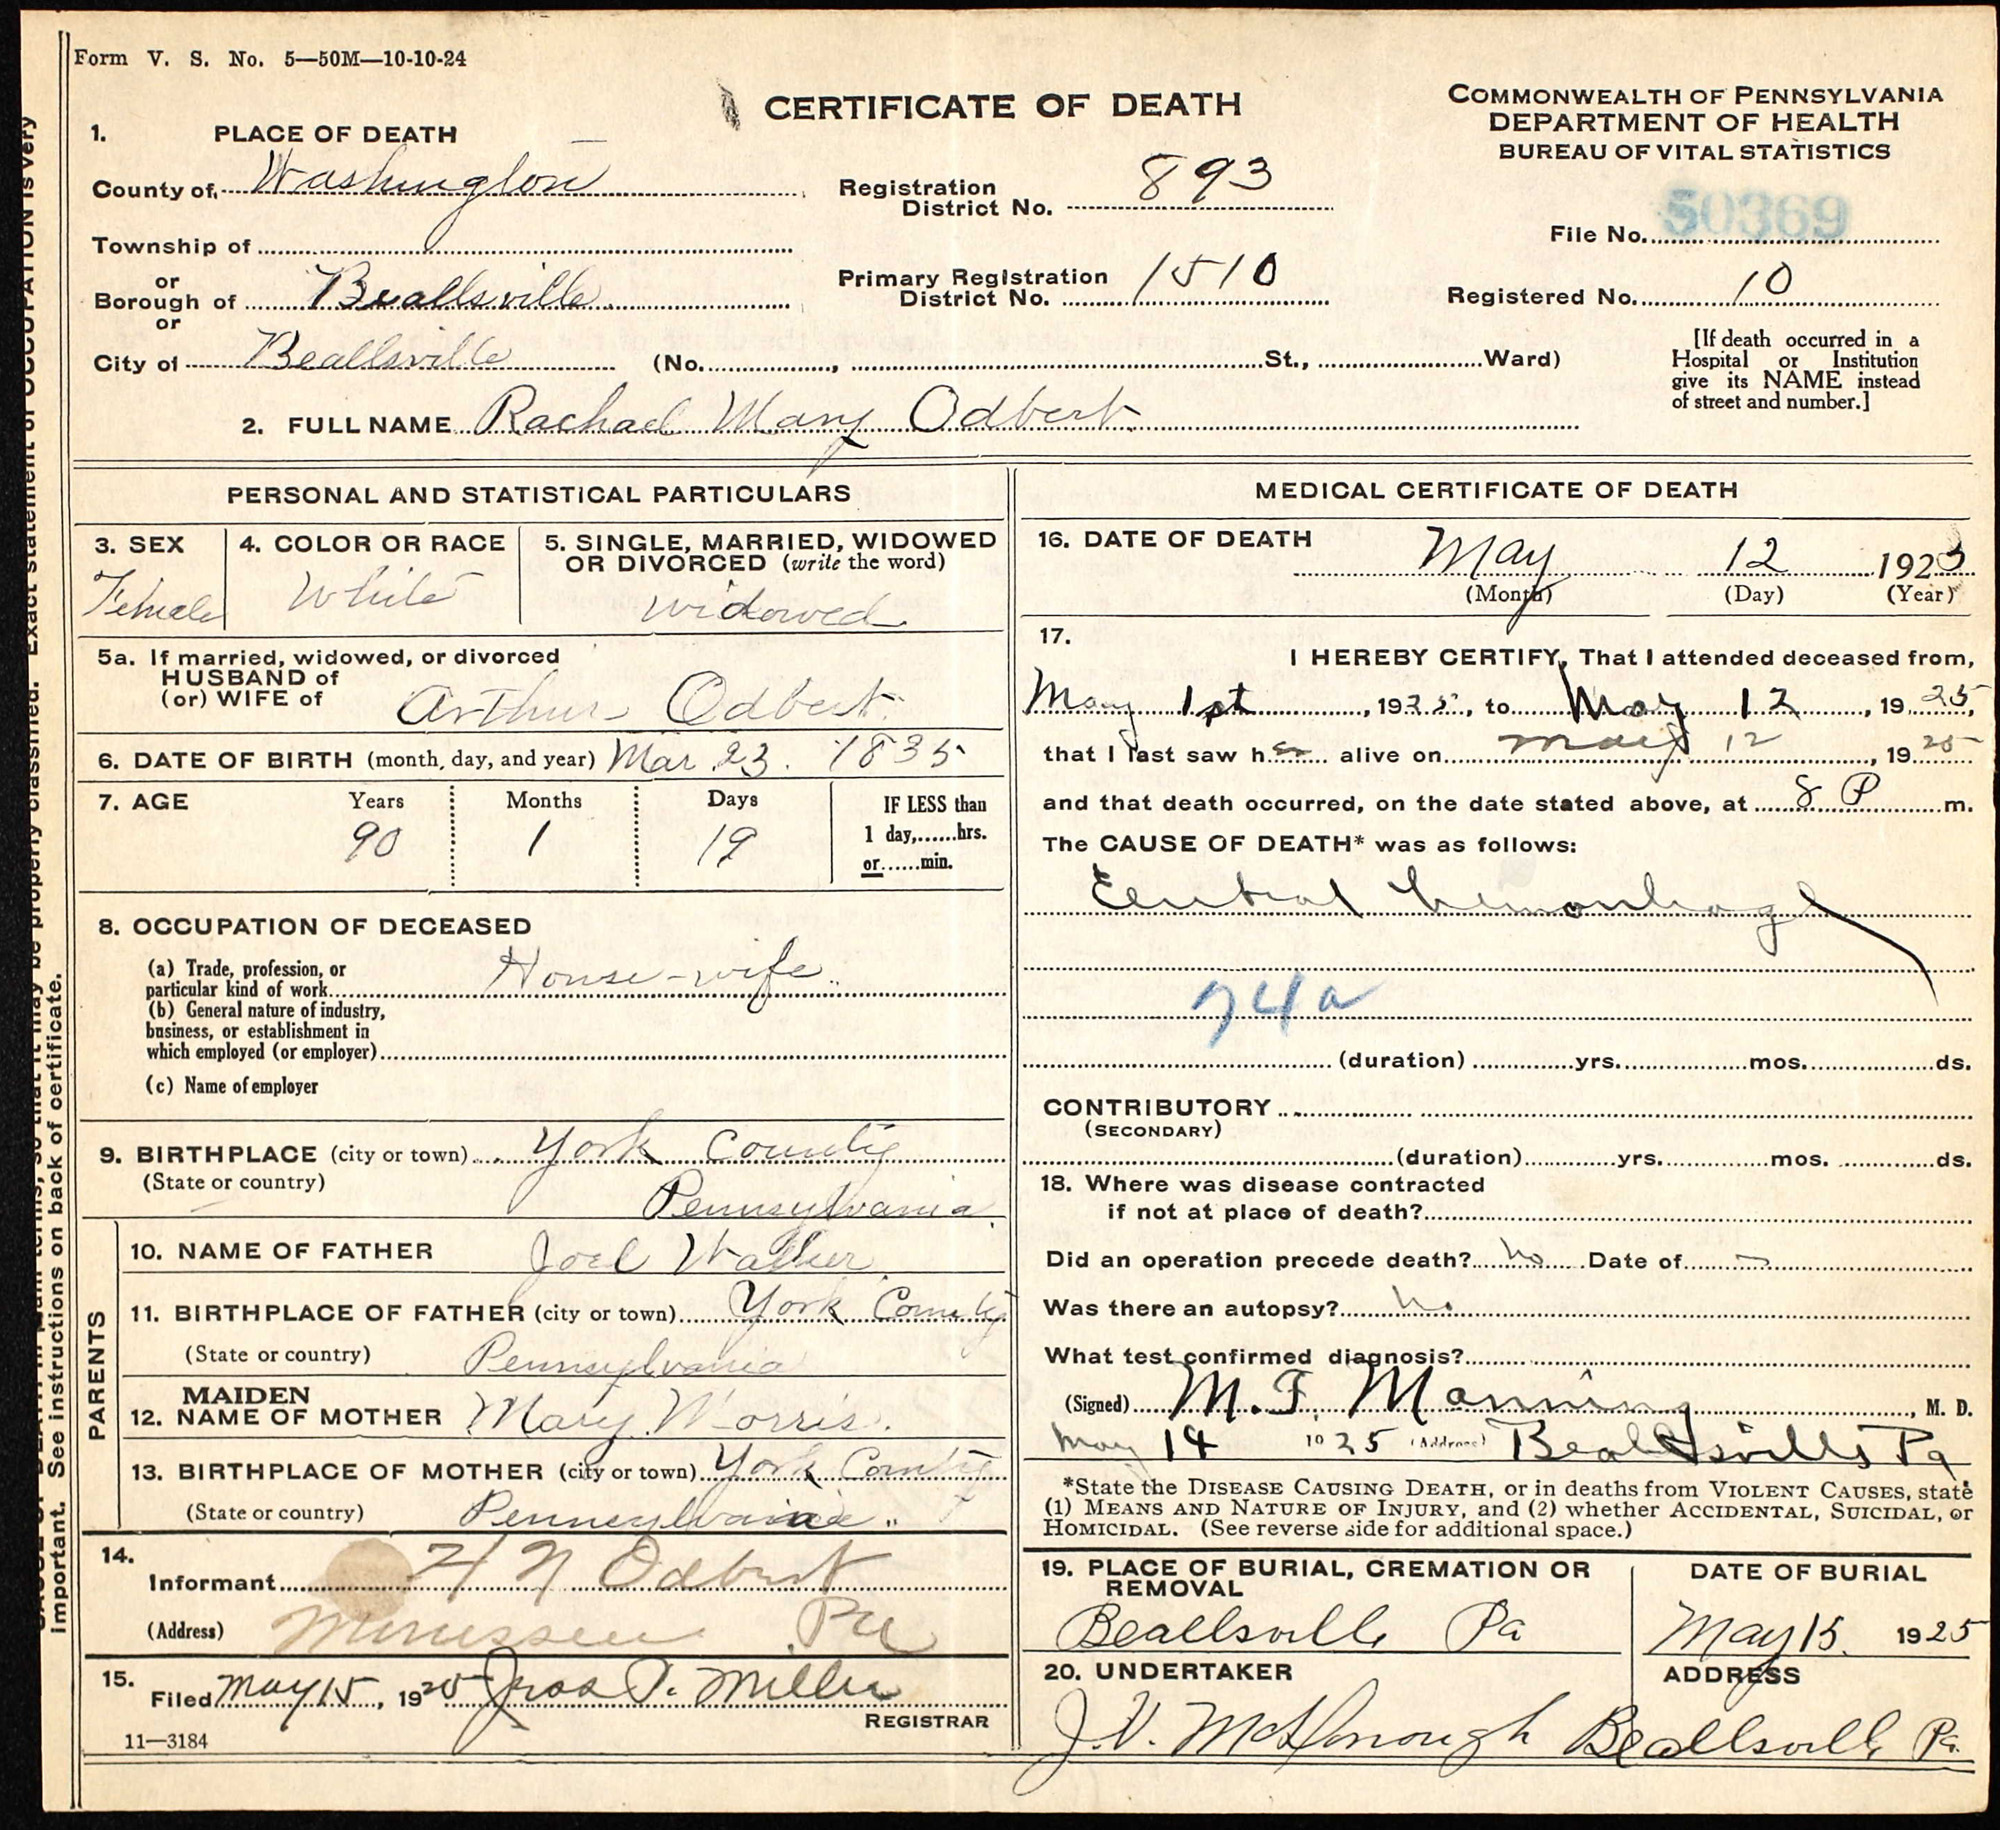 Form V. S. No. 5—50M—10-10-24
CERTIFICATE OF DEATH
COMMONWEALTH OF PENNSYLVANIA
DEPARTMENT OF HEALTH
BUREAU OF VITAL STATISTICS
1. PLACE OF DEATH
County of Washington
Registration District No. 893
File No. 50369
Township of
or
Borough of Beallsville
Primary Registration District No. 1510
Registered No. 10
or
City of Beallsville (No. , St., Ward)
[If death occurred in a
Hospital or Institution
give its NAME instead
of street and number.]
2. FULL NAME Rachael Mary Odbert
PERSONAL AND STATISTICAL PARTICULARS
3. SEX
Female
4. COLOR OR RACE
White
5. SINGLE, MARRIED, WIDOWED
OR DIVORCED (write the word)
widowed
5a. If married, widowed, or divorced
HUSBAND of
(or) WIFE of Arthur Odbert
6. DATE OF BIRTH (month, day, and year) Mar 23. 1835
7. AGE Years Months Days IF LESS than
90 1 19 1 day,......hrs.
or......min.
8. OCCUPATION OF DECEASED
(a) Trade, profession, or
particular kind of work House-wife
(b) General nature of industry,
business, or establishment in
which employed (or employer)
(c) Name of employer
9. BIRTHPLACE (city or town) York County
(State or country) Pennsylvania
PARENTS
10. NAME OF FATHER Joel
11. BIRTHPLACE OF FATHER (city or town) York County
(State or country) Pennsylvania
MAIDEN
12. NAME OF MOTHER Mary Morris.
13. BIRTHPLACE OF MOTHER (city or town) York County
(State or country) Pennsylvania
14.
Informant Odbert
(Address) Monessen Pa
15.
Filed May 15, 1925 Miller
REGISTRAR
11—3184
MEDICAL CERTIFICATE OF DEATH
16. DATE OF DEATH May 12 1925
(Month) (Day) (Year)
17.
I HEREBY CERTIFY, That I attended deceased from,
May 1st, 1925, to May 12, 1925,
that I last saw her alive on May 12, 1925
and that death occurred, on the date stated above, at 8 P m.
The CAUSE OF DEATH* was as follows:
hemorrhage
74a
(duration) yrs. mos. ds.
CONTRIBUTORY
(SECONDARY)
(duration) yrs. mos. ds.
18. Where was disease contracted
if not at place of death?
Did an operation precede death? No Date of —
Was there an autopsy? No
What test confirmed diagnosis?
(Signed) M. F. Manning, M. D.
May 14 1925 (Address) Beallsville Pa
*State the DISEASE CAUSING DEATH, or in deaths from VIOLENT CAUSES, state
(1) MEANS AND NATURE OF INJURY, and (2) whether ACCIDENTAL, SUICIDAL, or
HOMICIDAL. (See reverse side for additional space.)
19. PLACE OF BURIAL, CREMATION OR
REMOVAL
Beallsville Pa
DATE OF BURIAL
May 15. 1925
20. UNDERTAKER
ADDRESS
J. V. Beallsville Pa.
important. See instructions on back of certificate.